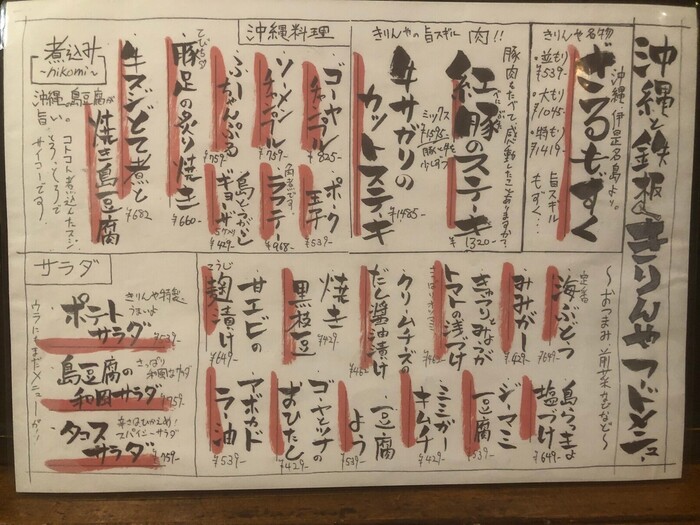 沖縄と鉄板 きりんや フードメニュー
〜おつまみ 前菜などなど〜
きりんや名物
ざるもずく
沖縄・伊是名島より。
並もり ¥539-
大もり ¥1045-
特もり ¥1419-
旨スギル
もずく…
きりんやの旨スギル 肉!!
豚肉をたべて、感動したことありますか?
紅豚のステーキ
¥1320-
ミックス
¥1595-
牛サガリの
カットステーキ
¥1485-
沖縄料理
ゴーヤ
チャンプル
¥825-
ソーメン
チャンプル
¥759-
ふーちゃんぷる
¥759-
てびちの
豚足の炙り焼き
¥660-
ポーク
玉子
¥539-
角煮です。
ラフテー
¥968-
島とうがらし
ギョーザ
¥429-
煮込み
〜nikomi〜
牛スジとて煮と
焼き島豆腐
¥682
沖縄の島豆腐が
旨い。
コトコト煮込んだスジ
とろっとろで
サイコーです
サラダ
きりんや特製
うまいよ
ポテト
サラダ
¥539-
さっぱり
和風サラダ
島豆腐の
和風サラダ
¥759-
辛さはひかえめ!
スパイシーサラダ
タコス
サラダ
¥759-
ウラにもまだメニューが!
定番
海ぶどう
¥649-
みみがー
¥429-
きゅうりとみょうが
トマトの浅づけ
クリームチーズの
だし醤油漬け
¥462
焼き
黒枝豆
¥429-
甘エビの
こうじ
麹漬け
¥649-
島らっきょ
塩づけ
¥649-
ジーマミ
豆腐
¥539-
ミミガー
キムチ
¥429-
豆腐
よう
¥539-
ゴーヤとツナの
おひたし
¥429-
アボカド
ラー油
¥539-